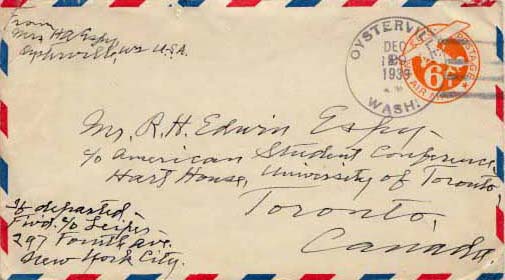 From
Mrs HA Espy
Oysterville, Wn U.S.A.
OYSTERVILLE
DEC
1938
WASH.
POSTAGE
AIR
6
Mr. R.H. Edwin Espy-
c/o American Student Conference,
Hart House, University of Toronto,
Toronto,
Canada.
If departed-
Fwd. c/o Leiper
297 Fourth Ave.
New York City.